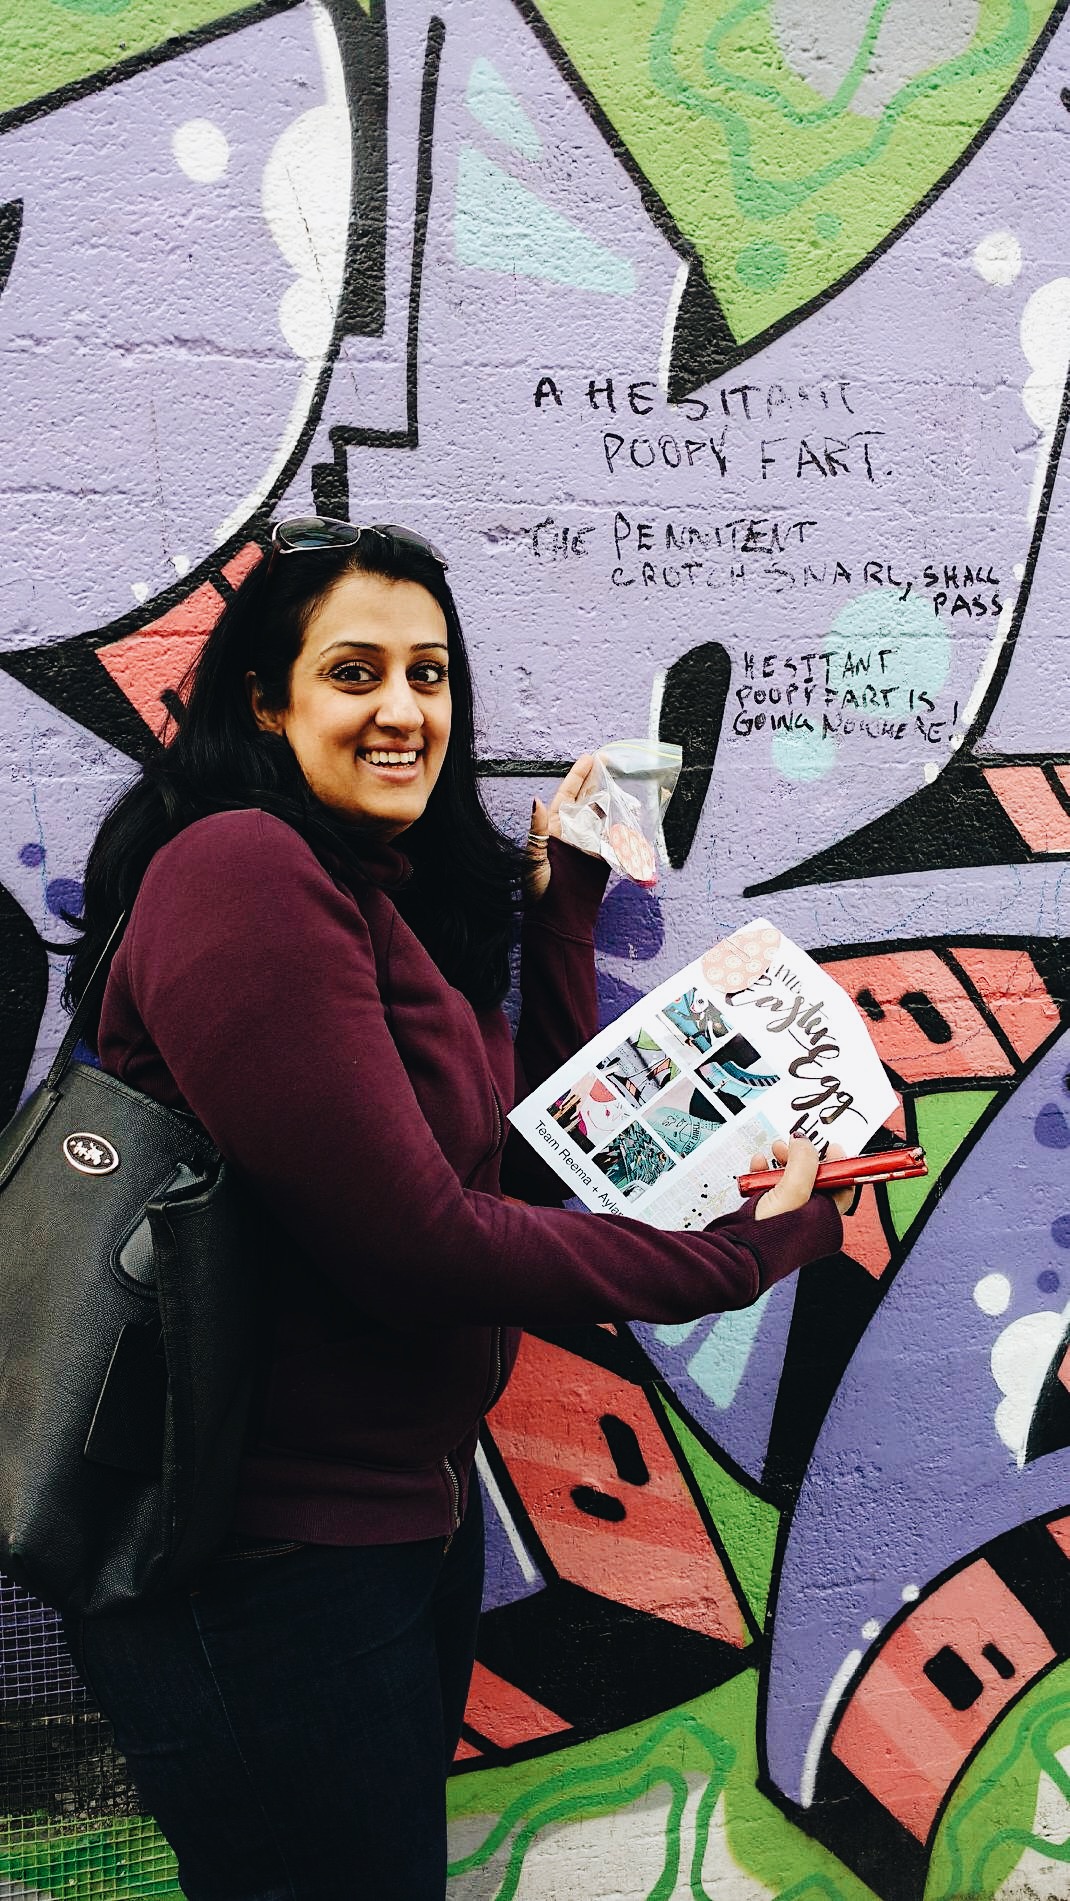 A HESITANT
POOPY FART.
THE PENNITENT
CROTCH SNARL, SHALL
PASS
HESITANT
POOPY FART IS
GOING NOWHERE!
Easter Egg
Team Reema +